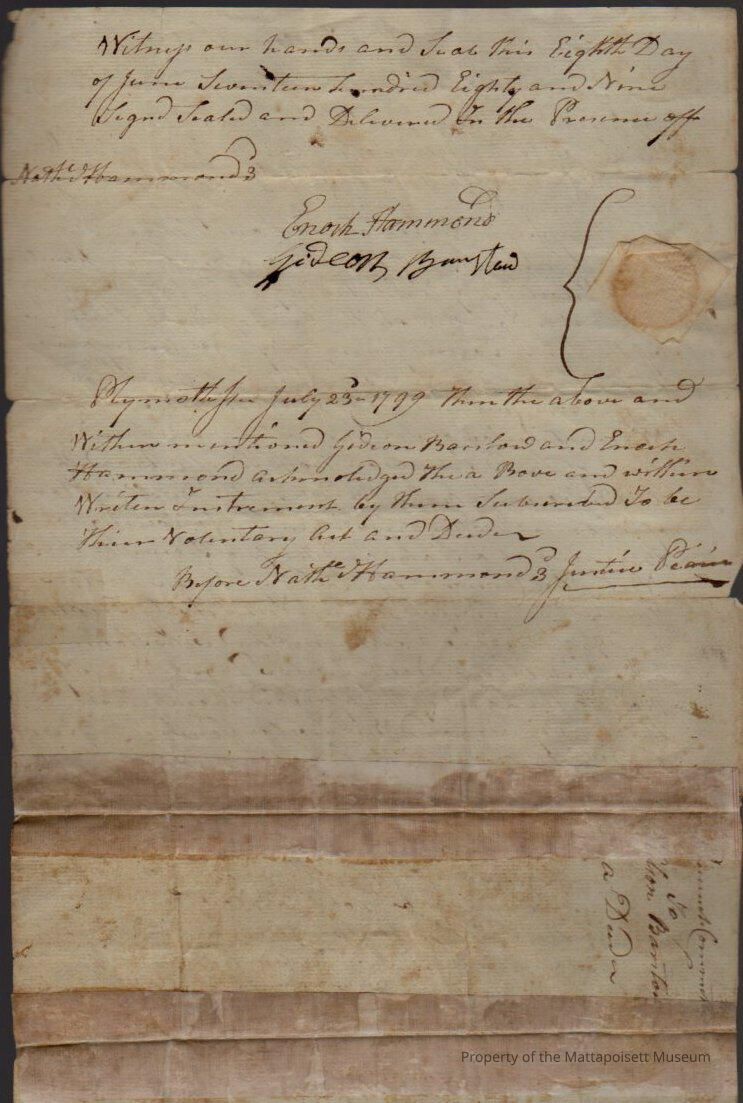 Witness our hands and Seals this Eighth Day
of June Seventeen hundred Eighty and Nine
Signd Sealed and Delivered In the Presence off
Nathl Hammond 3
Enoch Hammond
Gideon Barstow
Plymoth July 23 1799 then the above and
Within mentioned Gideon Barslow and Enoch
Hammond acknoledged the a Bove and within
Writen Instrement by them Subscribed To be
thier Volentary Act and Deed
Before Nathl Hammond 3 Justice
To
a Deed
Property of the Mattapoisett Museum